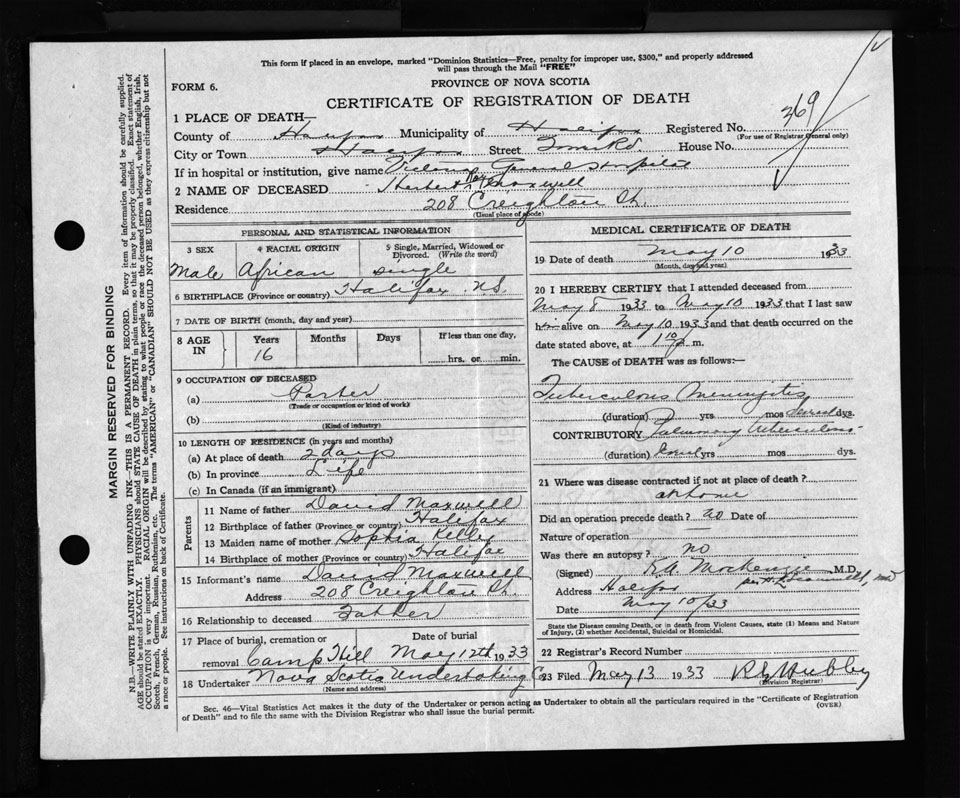 This form if placed in an envelope, marked "Dominion Statistics—Free, penalty for improper use, $300," and properly addressed
will pass through the Mail "FREE"
FORM 6.
PROVINCE OF NOVA SCOTIA
CERTIFICATE OF REGISTRATION OF DEATH
369
1 PLACE OF DEATH—
County of Halifax Municipality of Halifax Registered No.
(For use of Registrar General only)
City or Town Halifax Street Tower Rd. House No.
If in hospital or institution, give name Victoria General Hospital
2 NAME OF DECEASED Herbert Maxwell
Residence 208 Creighton St.
(Usual place of abode)
PERSONAL AND STATISTICAL INFORMATION
3 SEX
Male
4 RACIAL ORIGIN
African
5 Single, Married, Widowed or
Divorced. (Write the word)
single
6 BIRTHPLACE (Province or country) Halifax N.S.
7 DATE OF BIRTH (month, day and year)
8 AGE
IN
Years
16
Months
Days
If less than one day,
hrs. or min.
9 OCCUPATION OF DECEASED
(a) Porter
(Trade or occupation or kind of work)
(b)
(Kind of industry)
10 LENGTH OF RESIDENCE (in years and months)
(a) At place of death 2 days
(b) In province Life
(c) In Canada (if an immigrant)
Parents
11 Name of father David Maxwell
12 Birthplace of father (Province or country) Halifax
13 Maiden name of mother Sophia Kelly
14 Birthplace of mother (Province or country) Halifax
15 Informant's name David Maxwell
Address 208 Creighton St.
16 Relationship to deceased Father
17 Place of burial, cremation or
removal Camp Hill
Date of burial
May 12th 1933
18 Undertaker Nova Scotia Undertaking Co
(Name and address)
MEDICAL CERTIFICATE OF DEATH
19 Date of death May 10 1933
(Month, day and year)
20 I HEREBY CERTIFY that I attended deceased from
May 8 1933 to May 10 1933 that I last saw
him alive on May 10 1933 and that death occurred on the
date stated above, at 1 10 P m.
The CAUSE of DEATH was as follows:—
Tuberculous Meningitis
(duration) yrs mos several dys.
CONTRIBUTORY Pulmonary tuberculosis
(duration) yrs mos dys.
21 Where was disease contracted if not at place of death?
at home
Did an operation precede death? no Date of
Nature of operation
Was there an autopsy? no
(Signed) MacKenzie M.D.
Address Halifax per
Date May 10/33
State the Disease causing Death, or in death from Violent Causes, state (1) Means and Nature
of Injury, (2) whether Accidental, Suicidal or Homicidal.
22 Registrar's Record Number
23 Filed May 13 1933
(Division Registrar)
Sec. 46—Vital Statistics Act makes it the duty of the Undertaker or person acting as Undertaker to obtain all the particulars required in the "Certificate of Registration
of Death" and to file the same with the Division Registrar who shall issue the burial permit.
(OVER)
MARGIN RESERVED FOR BINDING
N.B.—WRITE PLAINLY WITH UNFADING INK—THIS IS A PERMANENT RECORD. Every item of information should be carefully supplied.
AGE should be stated EXACTLY. PHYSICIANS should STATE CAUSE OF DEATH in plain terms, so that it may be properly classified. Exact statement of
OCCUPATION is very important. RACIAL ORIGIN will be described by stating to what people or race the deceased person belonged, whether English, Irish,
Scotch, French, German, Russian, Ruthenian, etc. The terms "AMERICAN" or "CANADIAN" SHOULD NOT BE USED as they express citizenship but not
a race or people. See instructions on back of Certificate.